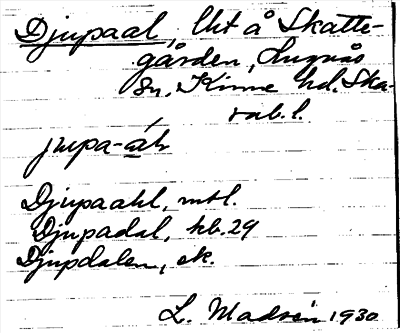 Djupaal, lht å Skatte-
gården, Lugnås
Sn, Kinne hd. Ska-
rab. l.
jupa-ák
Djupaahl, mtl.
Djupadal, hb. 29
Djupdalen, ek.
L. Madsén 1930